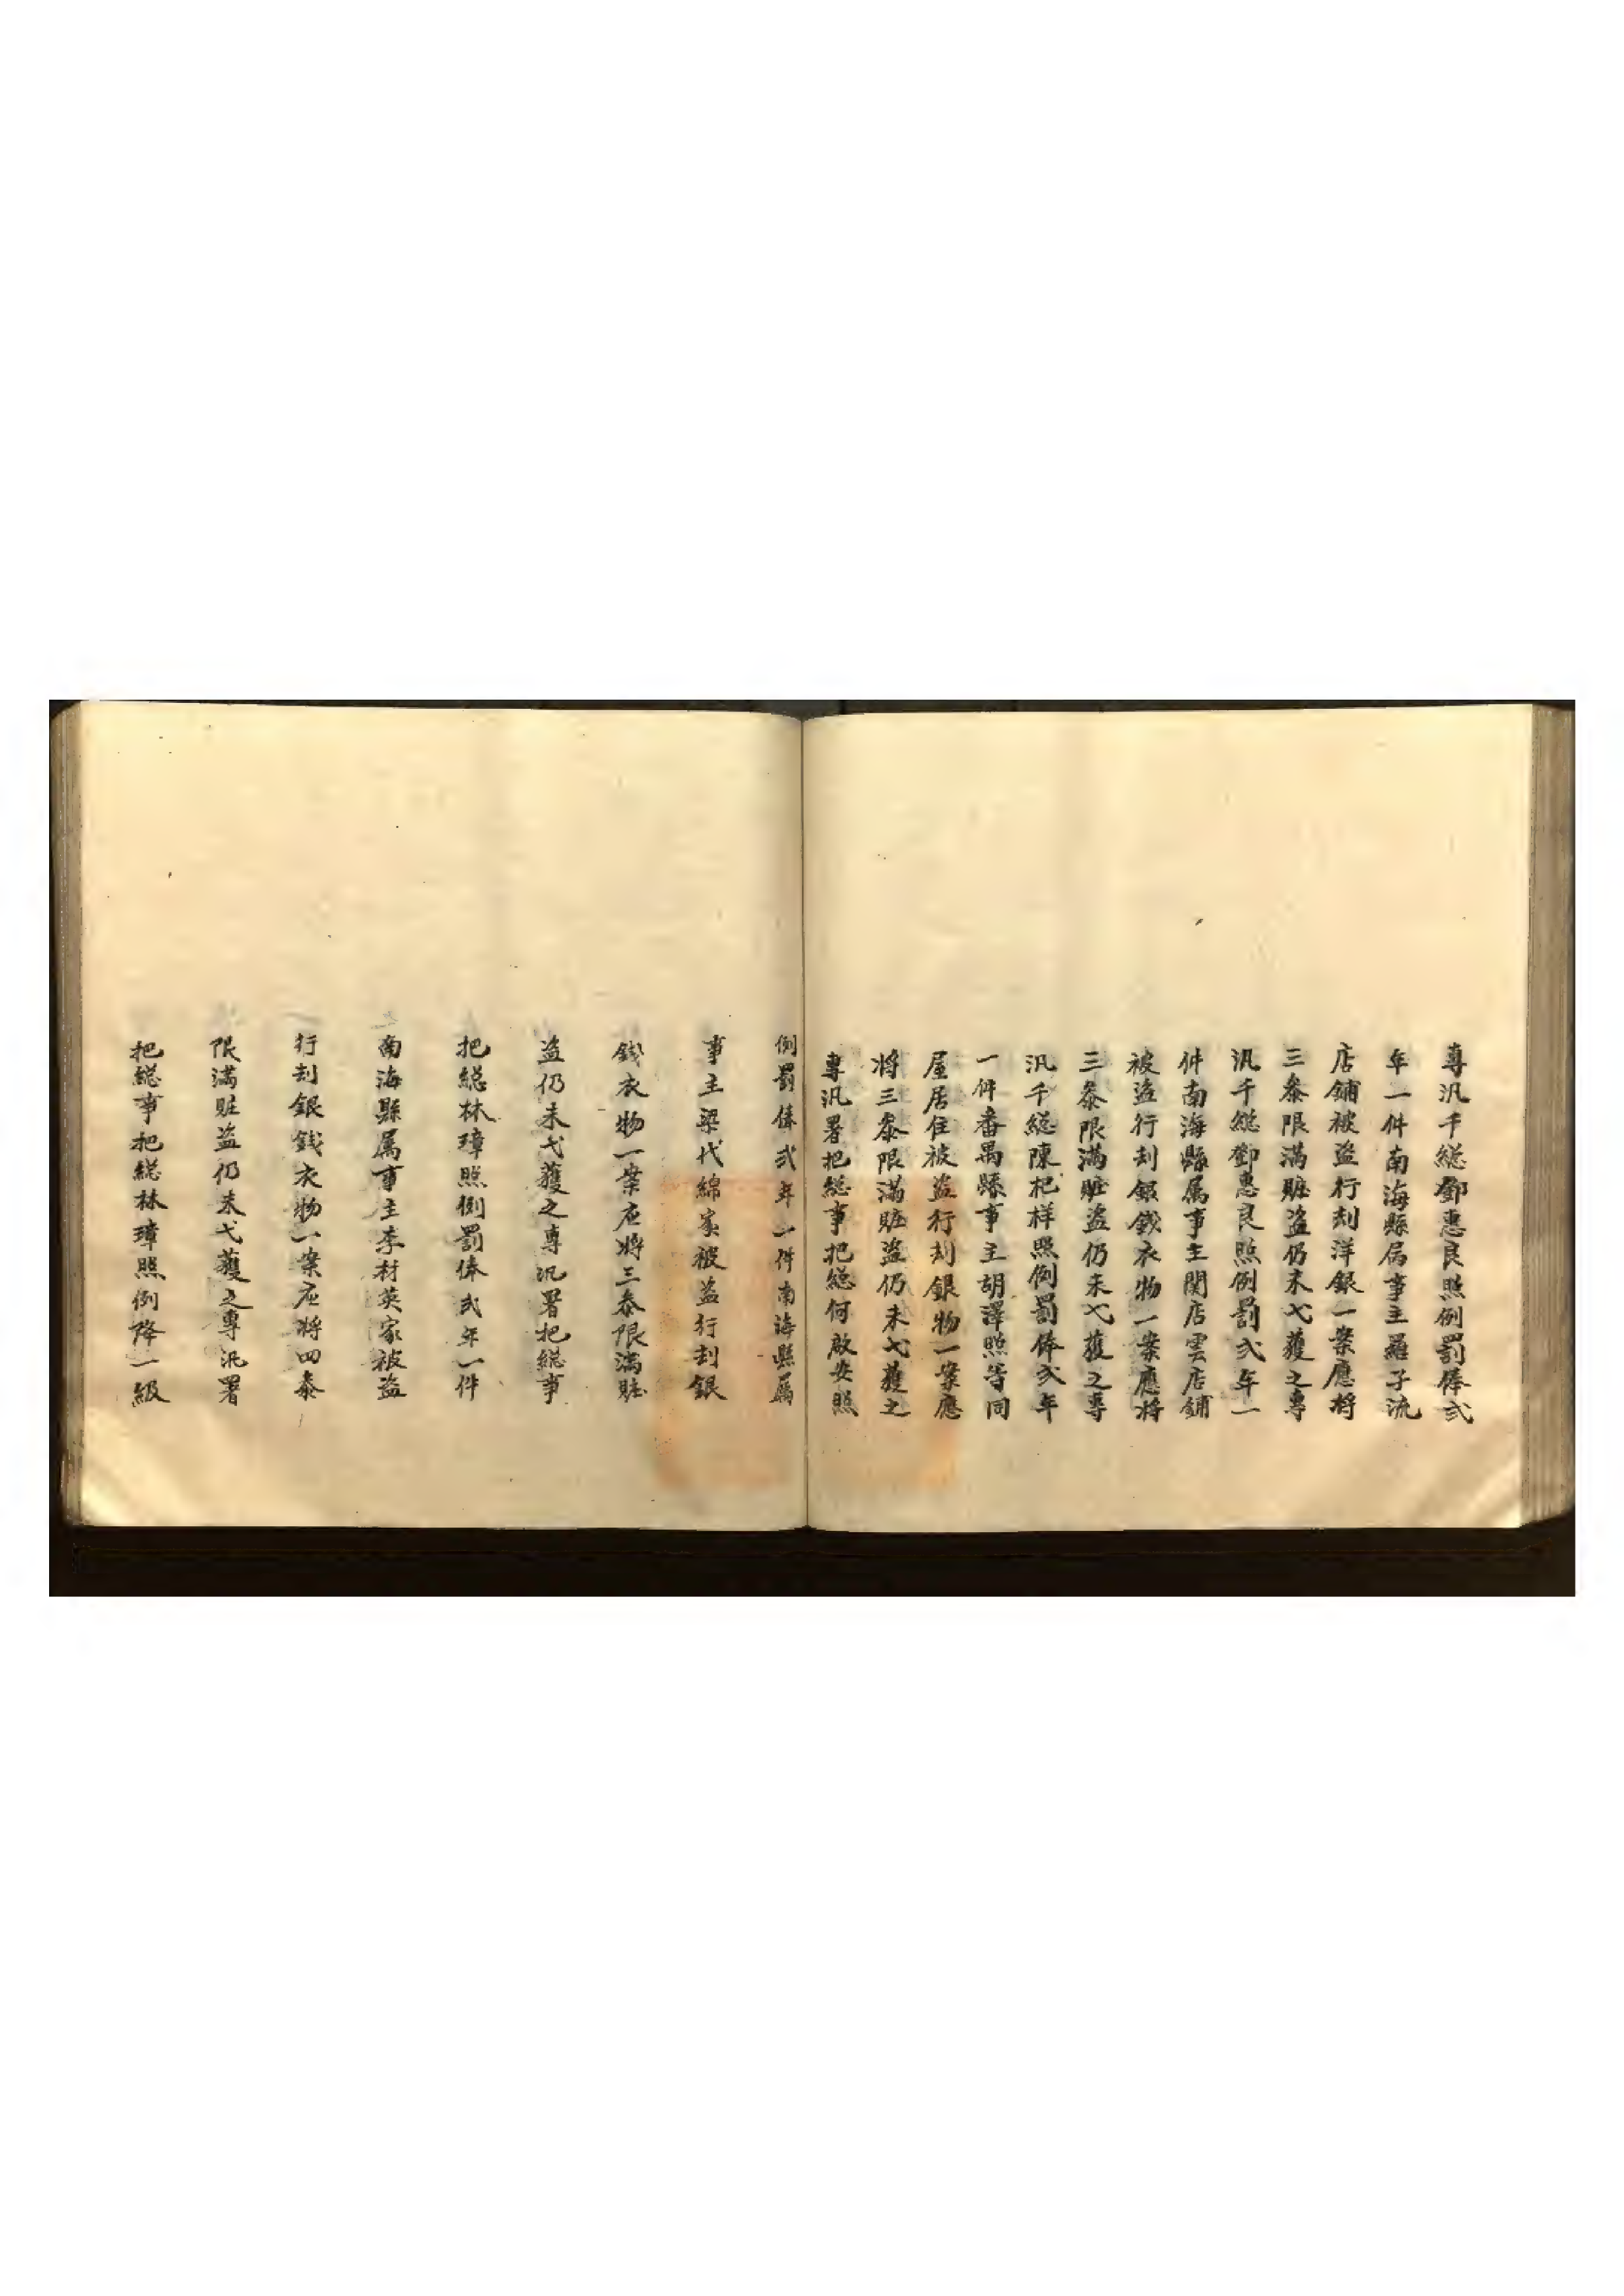 專汛千総鄧惠良照例罰俸弍
年一件南海縣属事主羅子流
店鋪被盗行刦洋銀一案應将
三叅限滿賍盗仍未弋獲之專
汛千総鄧惠良照例罰弍年一
件南海縣属事主関店雲店鋪
被盗行刦銀銭衣物一案應将
三叅限滿賍盗仍未弋獲之專
汛千総陳杞样照例罰俸弍年
一件番禺縣事主胡澤照等同
屋居住被盗行刦銀物一案應
将三叅限滿賍盗仍未弋獲之
專汛署把総事把総何啟安照
例罰俸弍年一件南海縣属
事主梁代綿家被盗行刦銀
銭衣物一案应將三叅限滿賍
盗仍未弋獲之專汛署把総事
把総林璋照例罰俸弍年一件
南海縣属事主李材英家被盗
行刦銀銭衣物一案应將四叅
限滿賍盗仍未弋獲之專汛署
把総事把総林璋照例降一級